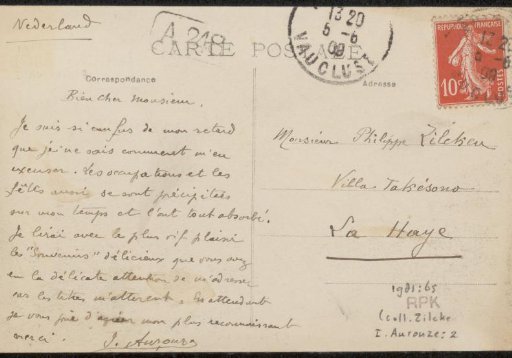 Nederland
A 248
13 20
5 - 6
09
VAUCLUSE
REPUBLIQUE FRANÇAISE
10c
POSTES
CARTE POSTALE
Correspondance
Adresse
Bien cher Monsieur,
Je suis si confus de mon retard
que je ne sais comment m'en
excuser. Les occupations et les
fêtes aussi se sont précipités
sur mon temps et l'ont tout absorbé.
Je lirai avec le plus vif plaisir
les "Souvenirs" délicieux que vous avez
eu la délicate attention de m'adresser
car les titres m'attirent. En attendant
je vous prie d'agréer mon plus reconnaissant
merci. J. Aurouze
Monsieur Philippe Zilcken
Villa Takésono
La Haye
1981:65
RPK
(coll. Zilcke
I. Aurouze: 2